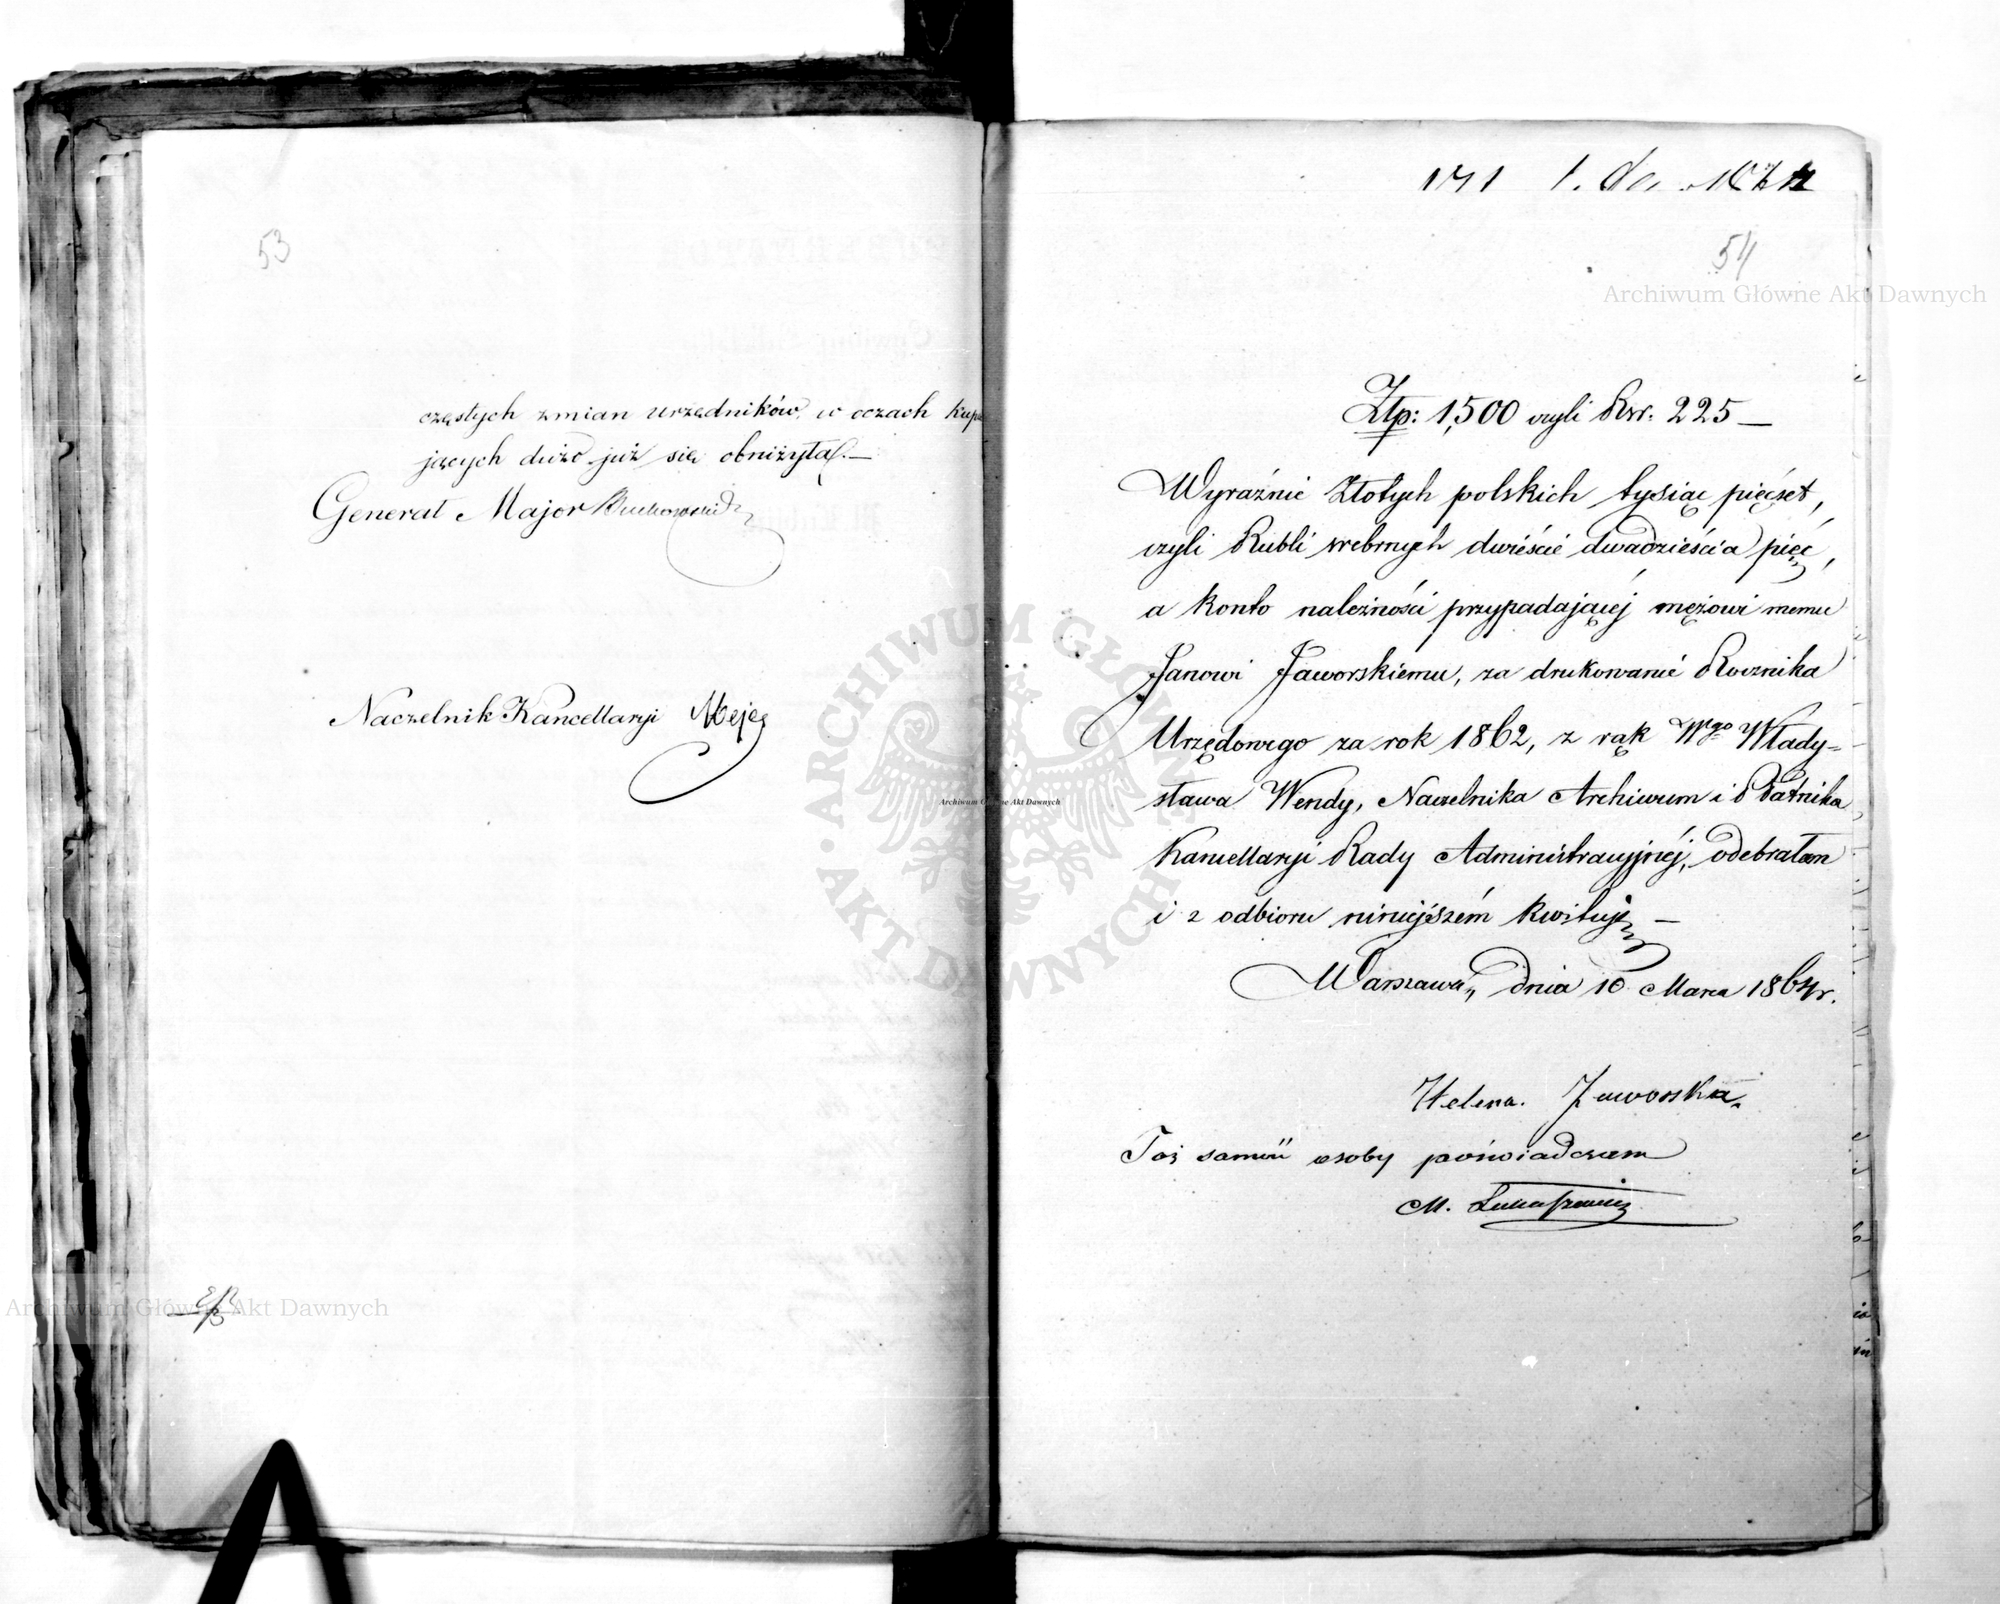 53
częstych zmian urzędników, w oczach kupu
jących dużo już się obniżyła.—
Generał Major
Naczelnik Kancellaryi
171 1. do
54
Archiwum Główne Akt Dawnych
Ztp: 1,500 czyli Rsr. 225 —
Wyraźnie Złotych polskich tysiąc pięćset,
czyli Rubli srebrnych dwieście dwadzieścia pięć,
a konto należności przypadającéj mężowi memu
Janowi Jaworskiemu, za drukowanie Rocznika
Urzędowego za rok 1862, z rąk Wgo Włady=
sława Wendy, Naczelnika Archiwum i Płatnika
Kancellaryi Rady Administracyjnéj, odebrałam
i z odbioru niniejszém kwituję —
Warszawa, dnia 10 Marca 1864 r.
Helena Jaworska
Toż samość osoby poświadczam
M. Łukaszewicz
Archiwum Główne Akt Dawnych
ARCHIWUM GŁÓWNE AKT DAWNYCH
Archiwum Główne Akt Dawnych